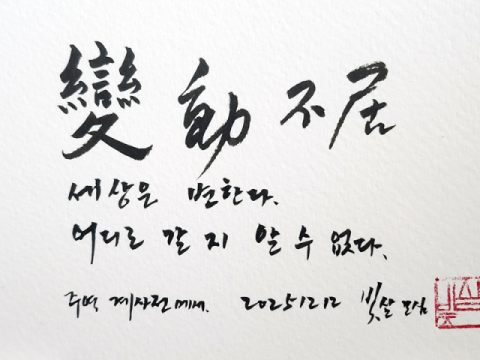 變動不居
세상은 변한다.
어디로 갈 지 알 수 없다.
주역 계사전에서. 20251212 빛살